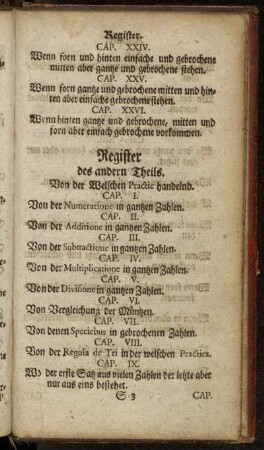 Register.
CAP. XXIV.
Wenn forn und hinten einfache und gebrochene
mitten aber gantze und gebrochene stehen.
CAP. XXV.
Wenn forn gantze und gebrochene mitten und hin-
ten aber einfache gebrochene stehen.
CAP. XXVI.
Wenn hinten gantze und gebrochene, mitten und
forn aber einfach gebrochene vorkommen.
Register
des andern Theils.
Von der Welschen Practic handelnd.
CAP. I.
Von der Numeratione in gantzen Zahlen.
CAP. II.
Von der Additione in gantzen Zahlen.
CAP. III.
Von der Subtractione in gantzen Zahlen.
CAP. IV.
Von der Multiplicatione in gantzen Zahlen.
CAP. V.
Von der Divisione in gantzen Zahlen.
CAP. VI.
Von Vergleichung der Müntzen.
CAP. VII.
Von denen Speciebus in gebrochenen Zahlen.
CAP. VIII.
Von der Regula de Tri in der welschen Practica.
CAP. IX.
Wo der erste Satz aus vielen Zahlen der letzte aber
nur aus eins bestehet.
S 3 CAP.